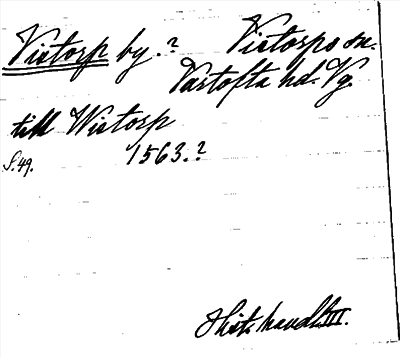 Vistorp by.? Vistorps sn.
Vartofta hd. Vg.
till Wistorp
S.49. 1563.?
Hist. handl. III.